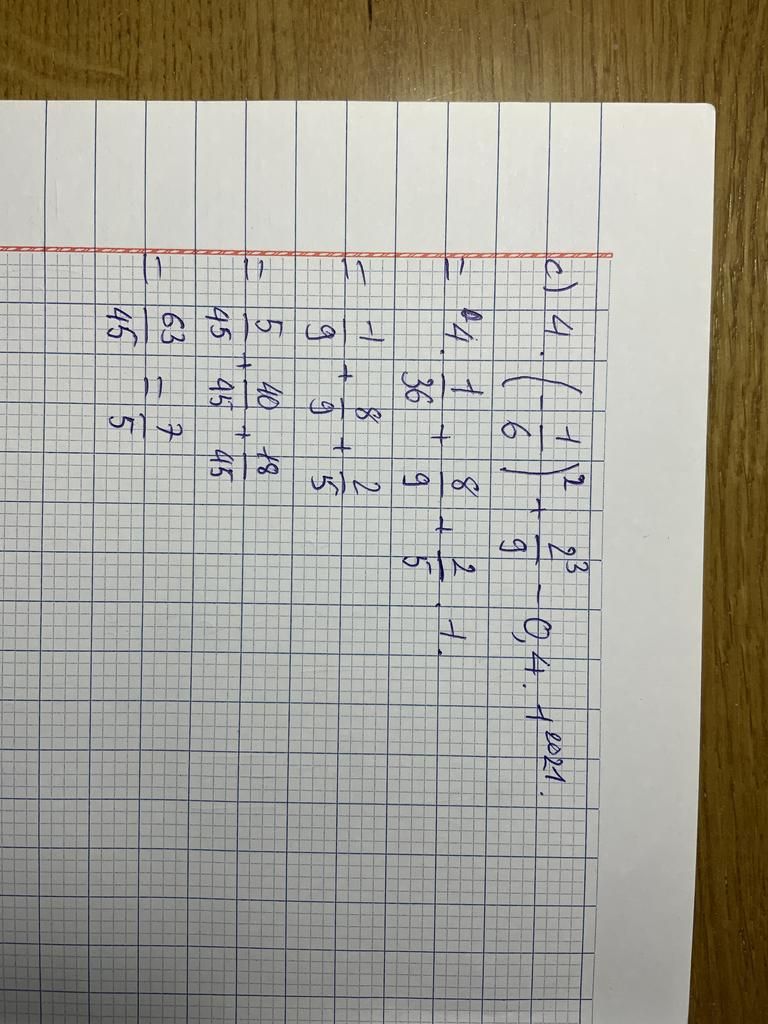 c) 4. (-1/6)² + 2³/9 - 0,4. 1²⁰²¹.
= 4. 1/36 + 8/9 + 2/5 . 1.
= -1/9 + 8/9 + 2/5
= 5/45 + 40/45 + 18/45
= 63/45 = 7/5